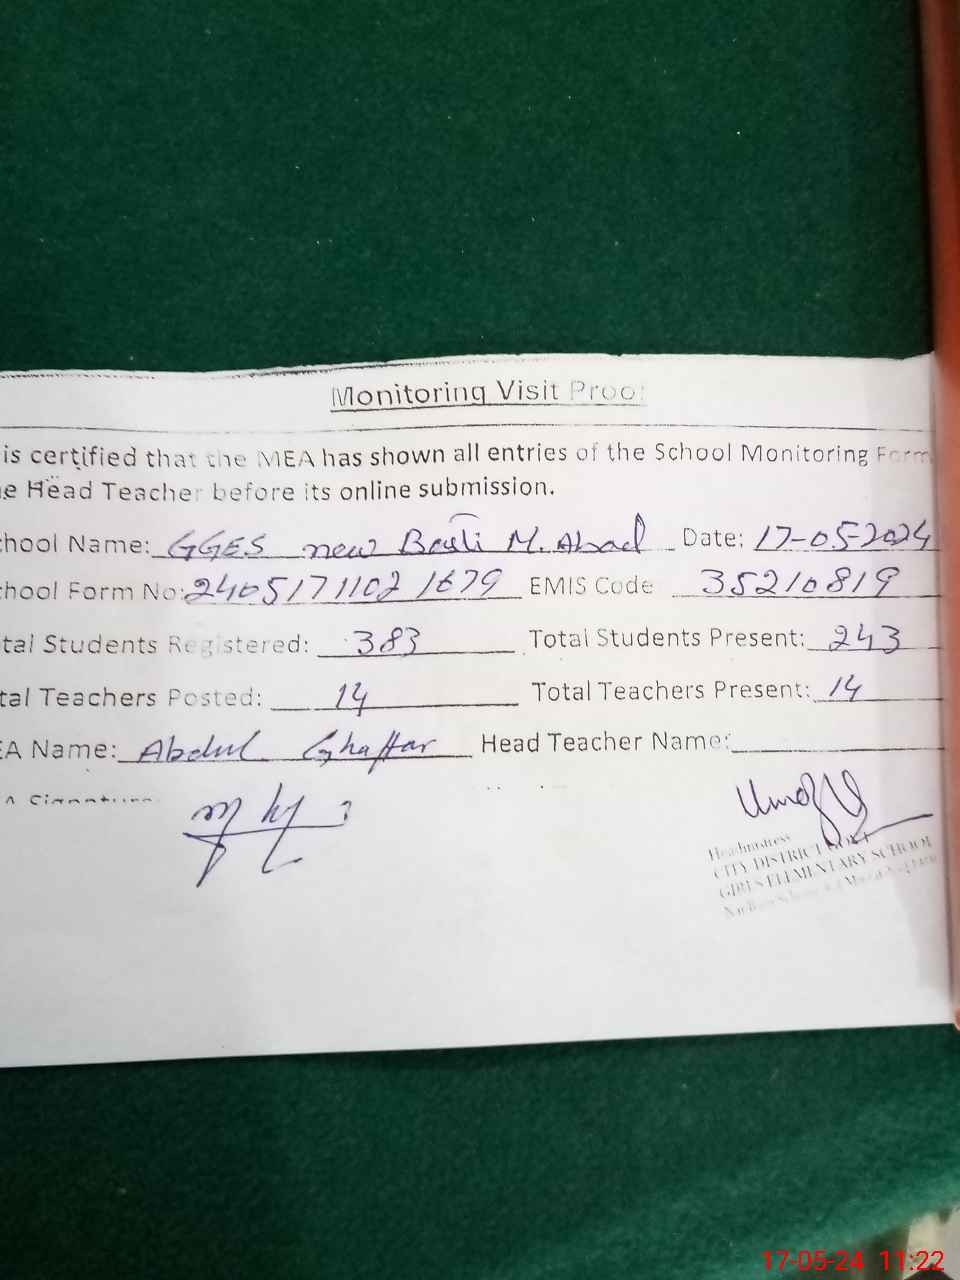 Monitoring Visit Proof
is certified that the MEA has shown all entries of the School Monitoring Form
e Head Teacher before its online submission.
hool Name: GGES new Basti M. Abad Date: 17-05-2024
hool Form No: 24051711021679 EMIS Code 35210819
tal Students Registered: 383 Total Students Present: 243
tal Teachers Posted: 14 Total Teachers Present: 14
EA Name: Abdul Ghaffar Head Teacher Name:
Headmistress
CITY DISTRICT GOVT
GIRLS ELEMENTARY SCHOOL
17-05-24 11:22